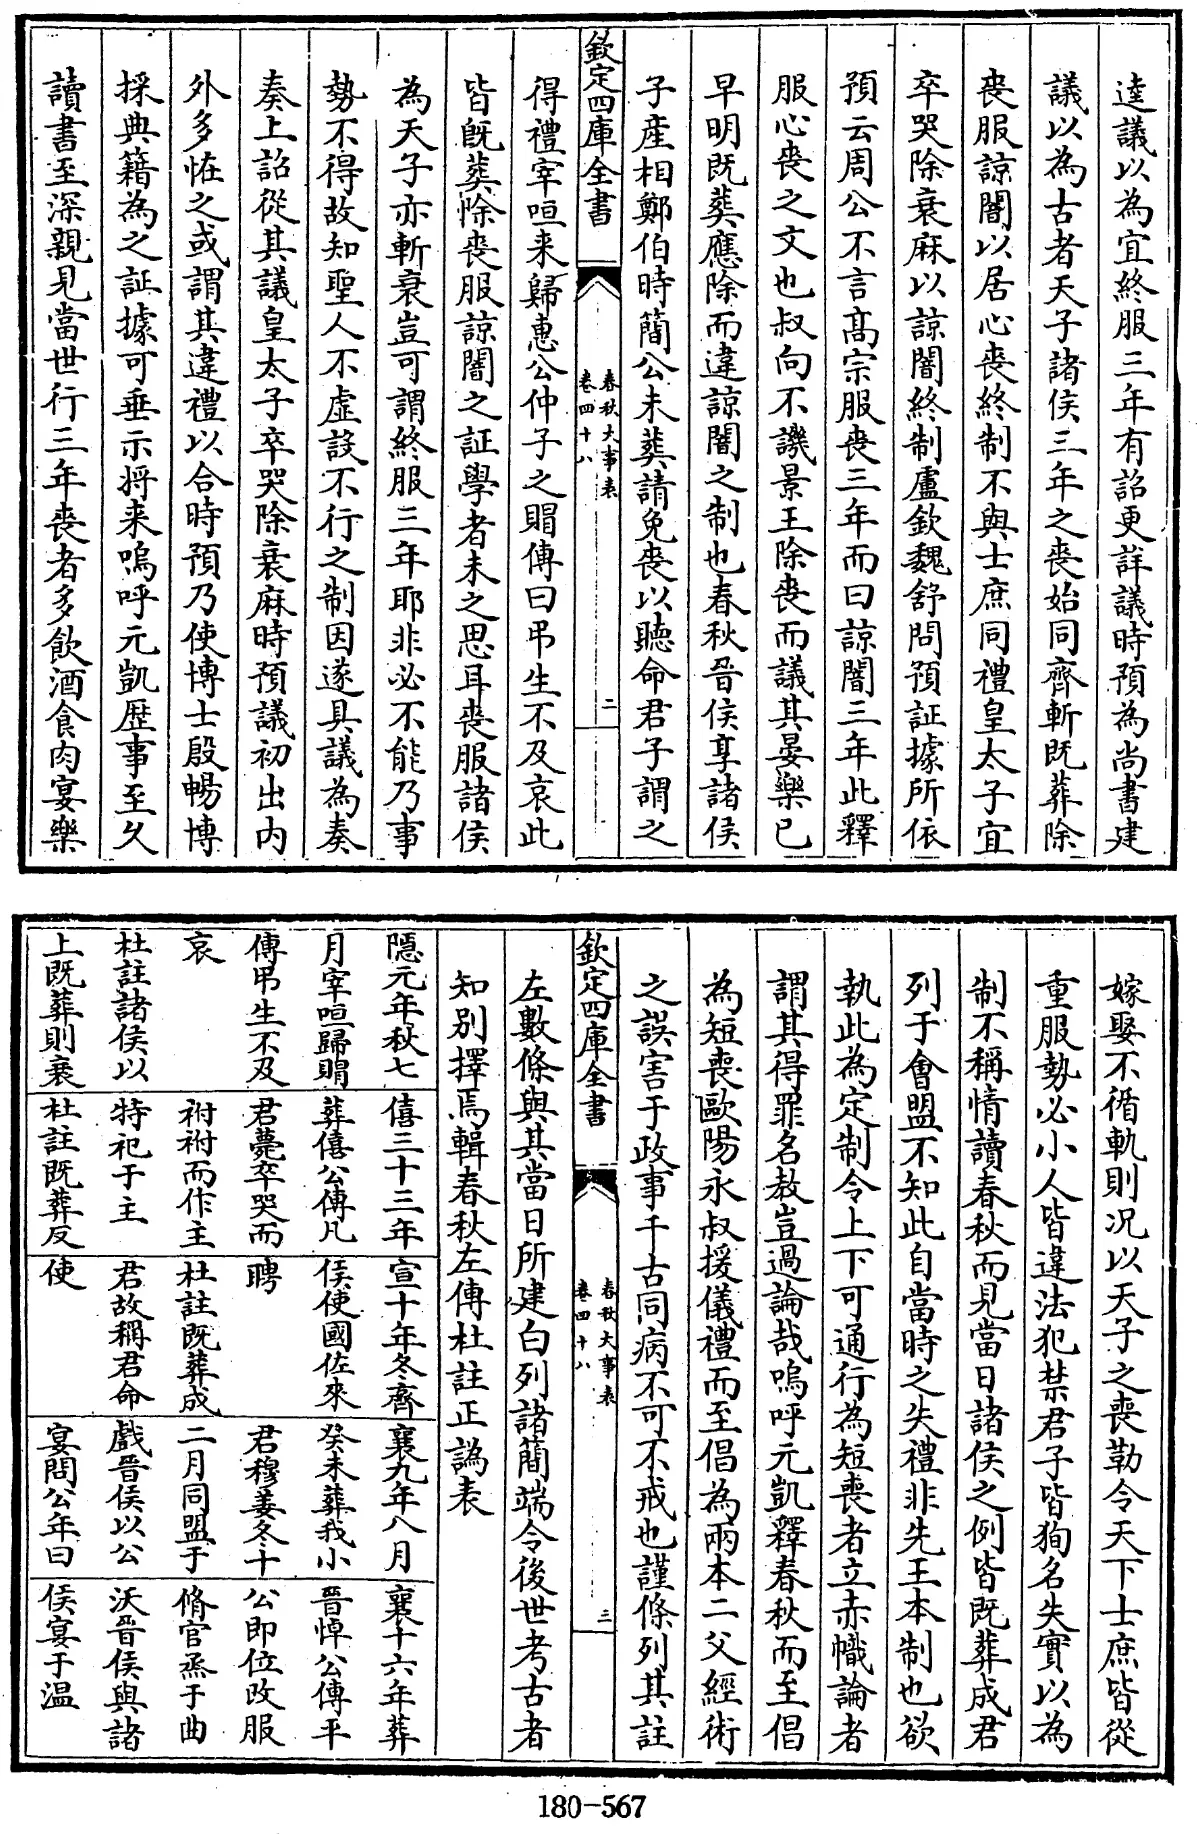 逵議以為宜終服三年有詔更詳議時預為尚書建
議以為古者天子諸侯三年之喪始同齊斬既葬除
喪服諒闇以居心喪終制不與士庶同禮皇太子宜
卒哭除衰麻以諒闇終制盧欽魏舒問預証據所依
預云周公不言高宗服喪三年而曰諒闇三年此釋
服心喪之文也叔向不譏景王除喪而議其宴樂已
早明既葬應除而違諒闇之制也春秋晉侯享諸侯
子產相鄭伯時簡公未葬請免喪以聽命君子謂之
欽定四庫全書
春秋大事表
卷四十八
二
得禮宰咺来歸惠公仲子之賵傳曰弔生不及哀此
皆既葬除喪服諒闇之証學者未之思耳喪服諸侯
為天子亦斬衰豈可謂終服三年耶非必不能乃事
勢不得故知聖人不虛設不行之制因遂具議為奏
奏上詔從其議皇太子卒哭除衰麻時預議初出内
外多怪之或謂其違禮以合時預乃使博士殷暢博
採典籍為之証據可垂示将来嗚呼元凱歴事至久
讀書至深親見當世行三年喪者多飲酒食肉宴樂
嫁娶不循軌則况以天子之喪勒令天下士庶皆從
重服勢必小人皆違法犯禁君子皆狥名失實以為
制不稱情讀春秋而見當日諸侯之例皆既葬成君
列于會盟不知此自當時之失禮非先王本制也欲
執此為定制令上下可通行為短喪者立赤幟論者
謂其得罪名教豈過論哉嗚呼元凱釋春秋而至倡
為短喪歐陽永叔援儀禮而至倡為兩本二父經術
之誤害于政事千古同病不可不戒也謹條列其註
欽定四庫全書
春秋大事表
卷四十八
三
左數條與其當日所建白列諸簡端令後世考古者
知別擇焉輯春秋左傳杜註正譌表
隱元年秋七
月宰咺歸賵
傳弔生不及
哀
杜註諸侯以
上既葬則衰
僖三十三年
葬僖公傳凡
君薨卒哭而
祔祔而作主
特祀于主
杜註既葬反
宣十年冬齊
侯使國佐來
聘
杜註既葬成
君故稱君命
使
襄九年八月
癸未葬我小
君穆姜冬十
二月同盟于
戲晉侯以公
宴問公年曰
襄十六年葬
晉悼公傳平
公即位改服
脩官烝于曲
沃晉侯與諸
侯宴于温
180-567